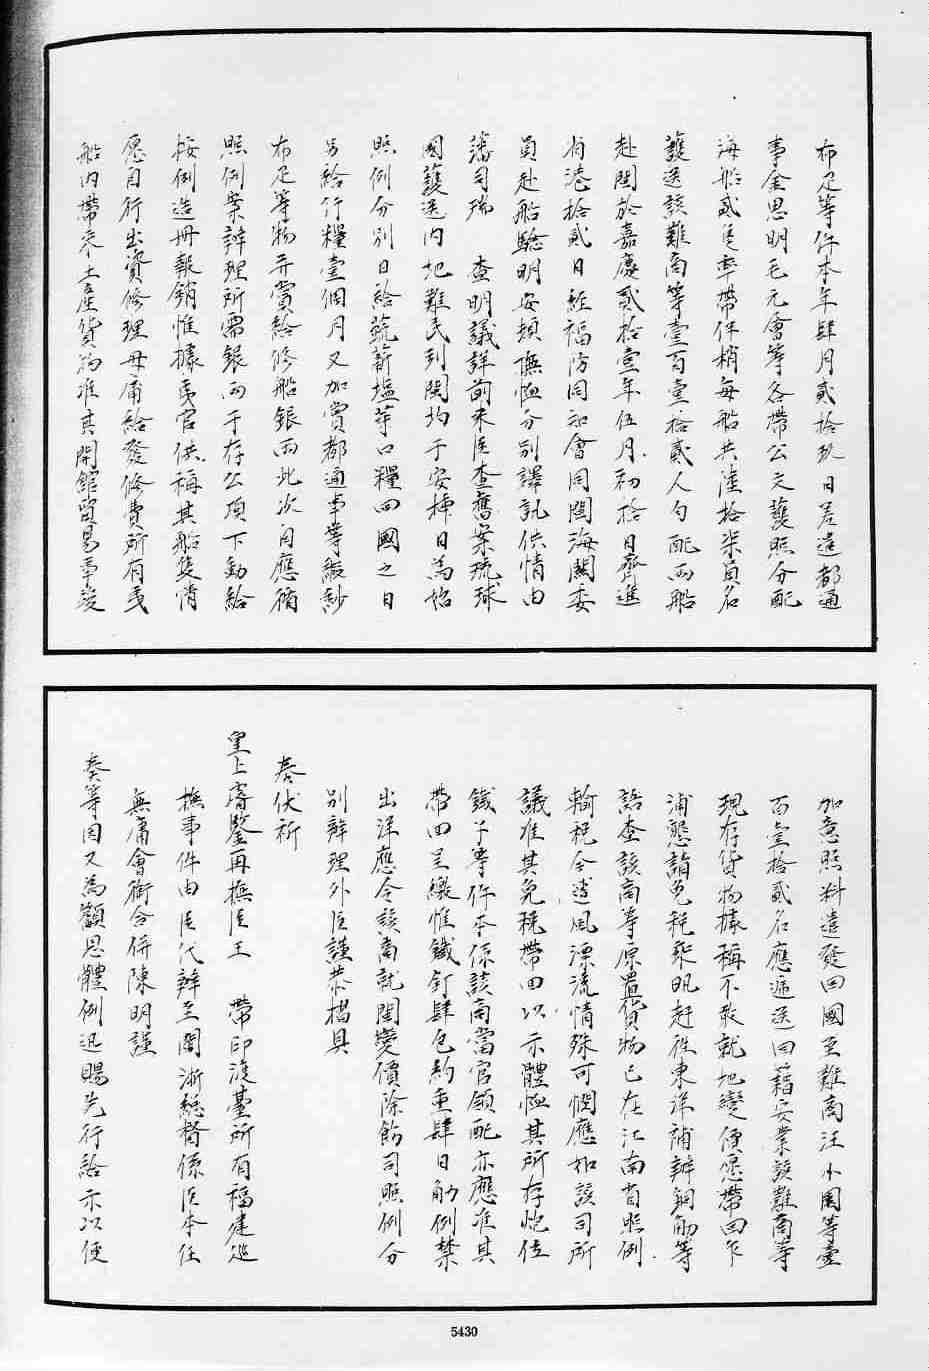 布疋等件本年肆月貳拾玖日差遣都通
事金思明毛元會等各帶公文護照分配
海船貳隻率帶伴梢每船共陸拾柒員名
護送該難商等壹百壹拾貳人勻配兩船
赴閩於嘉慶貳拾壹年伍月初拾日齊進
省港拾貳日經福防同知會同閩海關委
員赴船驗明安頓撫恤分別譯訊供情由
藩司瑞 查明議詳前來臣查舊案琉球
國護送內地難民到閩均于安揷日為始
照例分別日給蔬薪塩菜口糧回國之日
另給行糧壹個月又加賞都通事等緞紗
布疋等物并賞給修船銀兩此次自應循
照例案辦理所需銀兩于存公項下動給
按例造冊報銷惟據夷官供稱其船隻情
愿自行出資修理毋庸給發修費所有夷
船內帶來土產貨物准其開館貿易事竣
加意照料遣發回國至難商汪小園等壹
百壹拾貳名應遞送回籍安業該難商等
現存貨物據稱不敢就地變價愿帶回乍
浦懇請免稅乘帆赶往東洋補辦銅觔等
語查該商等原置貨物已在江南省照例
輸稅今遭風漂流情殊可憫應如該司所
議准其免稅帶回以示體恤其所存炮位
鐵子等件本係該商當官領配亦應准其
帶回呈繳惟鐵釘肆包約重肆百觔例禁
出洋應令該商就閩變價除飭司照例分
別辦理外臣謹恭摺具
奏伏祈
皇上睿鑒再撫臣王 帶印渡臺所有福建巡
撫事件由臣代辦至閩浙總督係臣本任
無庸會銜合併陳明謹
奏等因又為籲恩體例迅賜先行諮示以便
5430